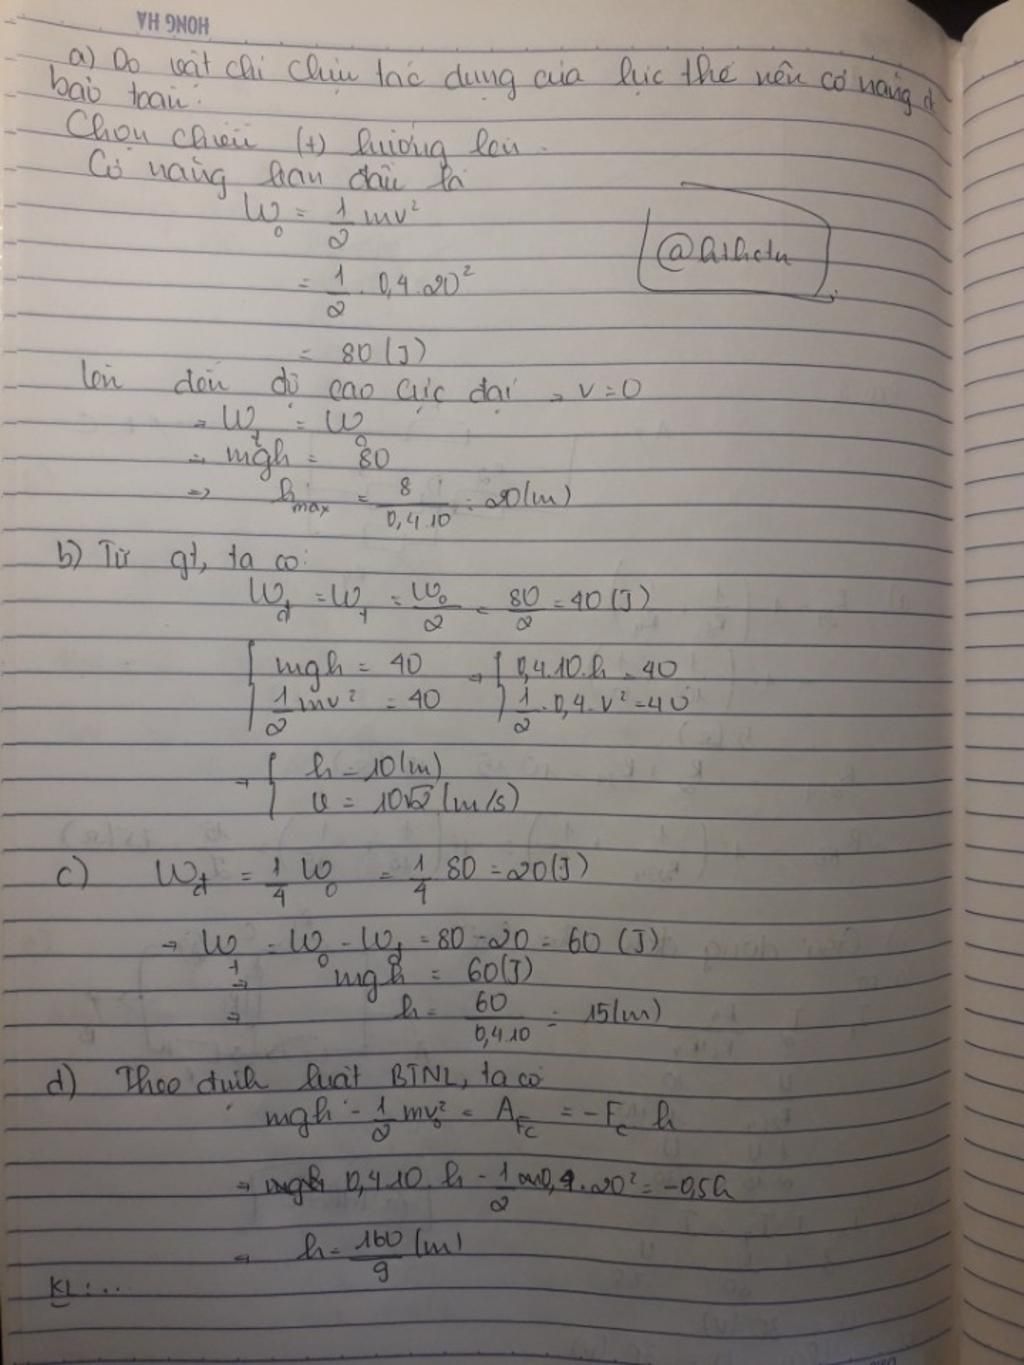 HONG HA
a) Do vật chỉ chịu tác dụng của lực thế nên cơ năng đ
bảo toàn.
Chọn chiều (+) hướng lên.
Cơ năng ban đầu là
W₀ = 1/2 mv²
= 1/2 . 0,4 . 20²
= 80 (J)
lên đến độ cao cực đại → v = 0
→ Wt = W₀
→ mgh = 80
=> hmax = 8/0,4.10 = 20 (m)
@hthctu
b) Từ gt, ta có:
Wđ = Wt = W₀/2 = 80/2 = 40 (J)
{ mgh = 40 → { 0,4.10.h = 40
1/2 mv² = 40 1/2 . 0,4 . v² = 40
→ { h = 10 (m)
v = 10√2 (m/s)
c) Wđ = 1/4 W₀ = 1/4 80 = 20 (J)
→ Wt = W₀ - Wđ = 80 - 20 = 60 (J)
=> mgh = 60 (J)
=> h = 60/0,4.10 = 15 (m)
d) Theo định luật BTNL, ta có
mgh - 1/2 mv₀² = AFc = -Fc h
→ 0,4.10.h - 1/2 0,4.20² = -0,5h
→ h = 160/9 (m)
KL:...